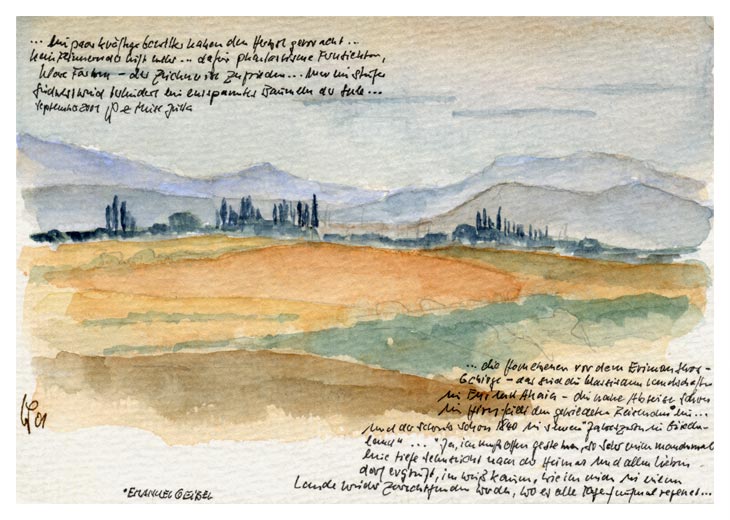 ... ein paar kräftige Gewitter haben den Herbst gebracht...
kein Flimmern der Luft mehr... dafür phantastische Fernsichten,
klare Farben – der Zeichner ist zufrieden... Nur ein steifer
Südwestwind behindert ein entspanntes Baumeln der Seele...
September 2001
... die Ebenen vor dem Erimanthos-
Gebirge – das sind die Landschaften
in Elis und Achaia – die nahe Abreise schon
im Herz
Und der schrieb schon 1840 in seinen "Jahreszeiten in Griechen-
land" ... "Ja, ich muß offen gestehen, so sehr mich manchmal
eine tiefe Sehnsucht nach der Heimat und allen Lieben
dort ergreift, ich weiß kaum, wie ich mich in einem
Lande wieder zurechtfinden werde, wo es alle Tage regnet...
01
*EMANUEL GEIBEL